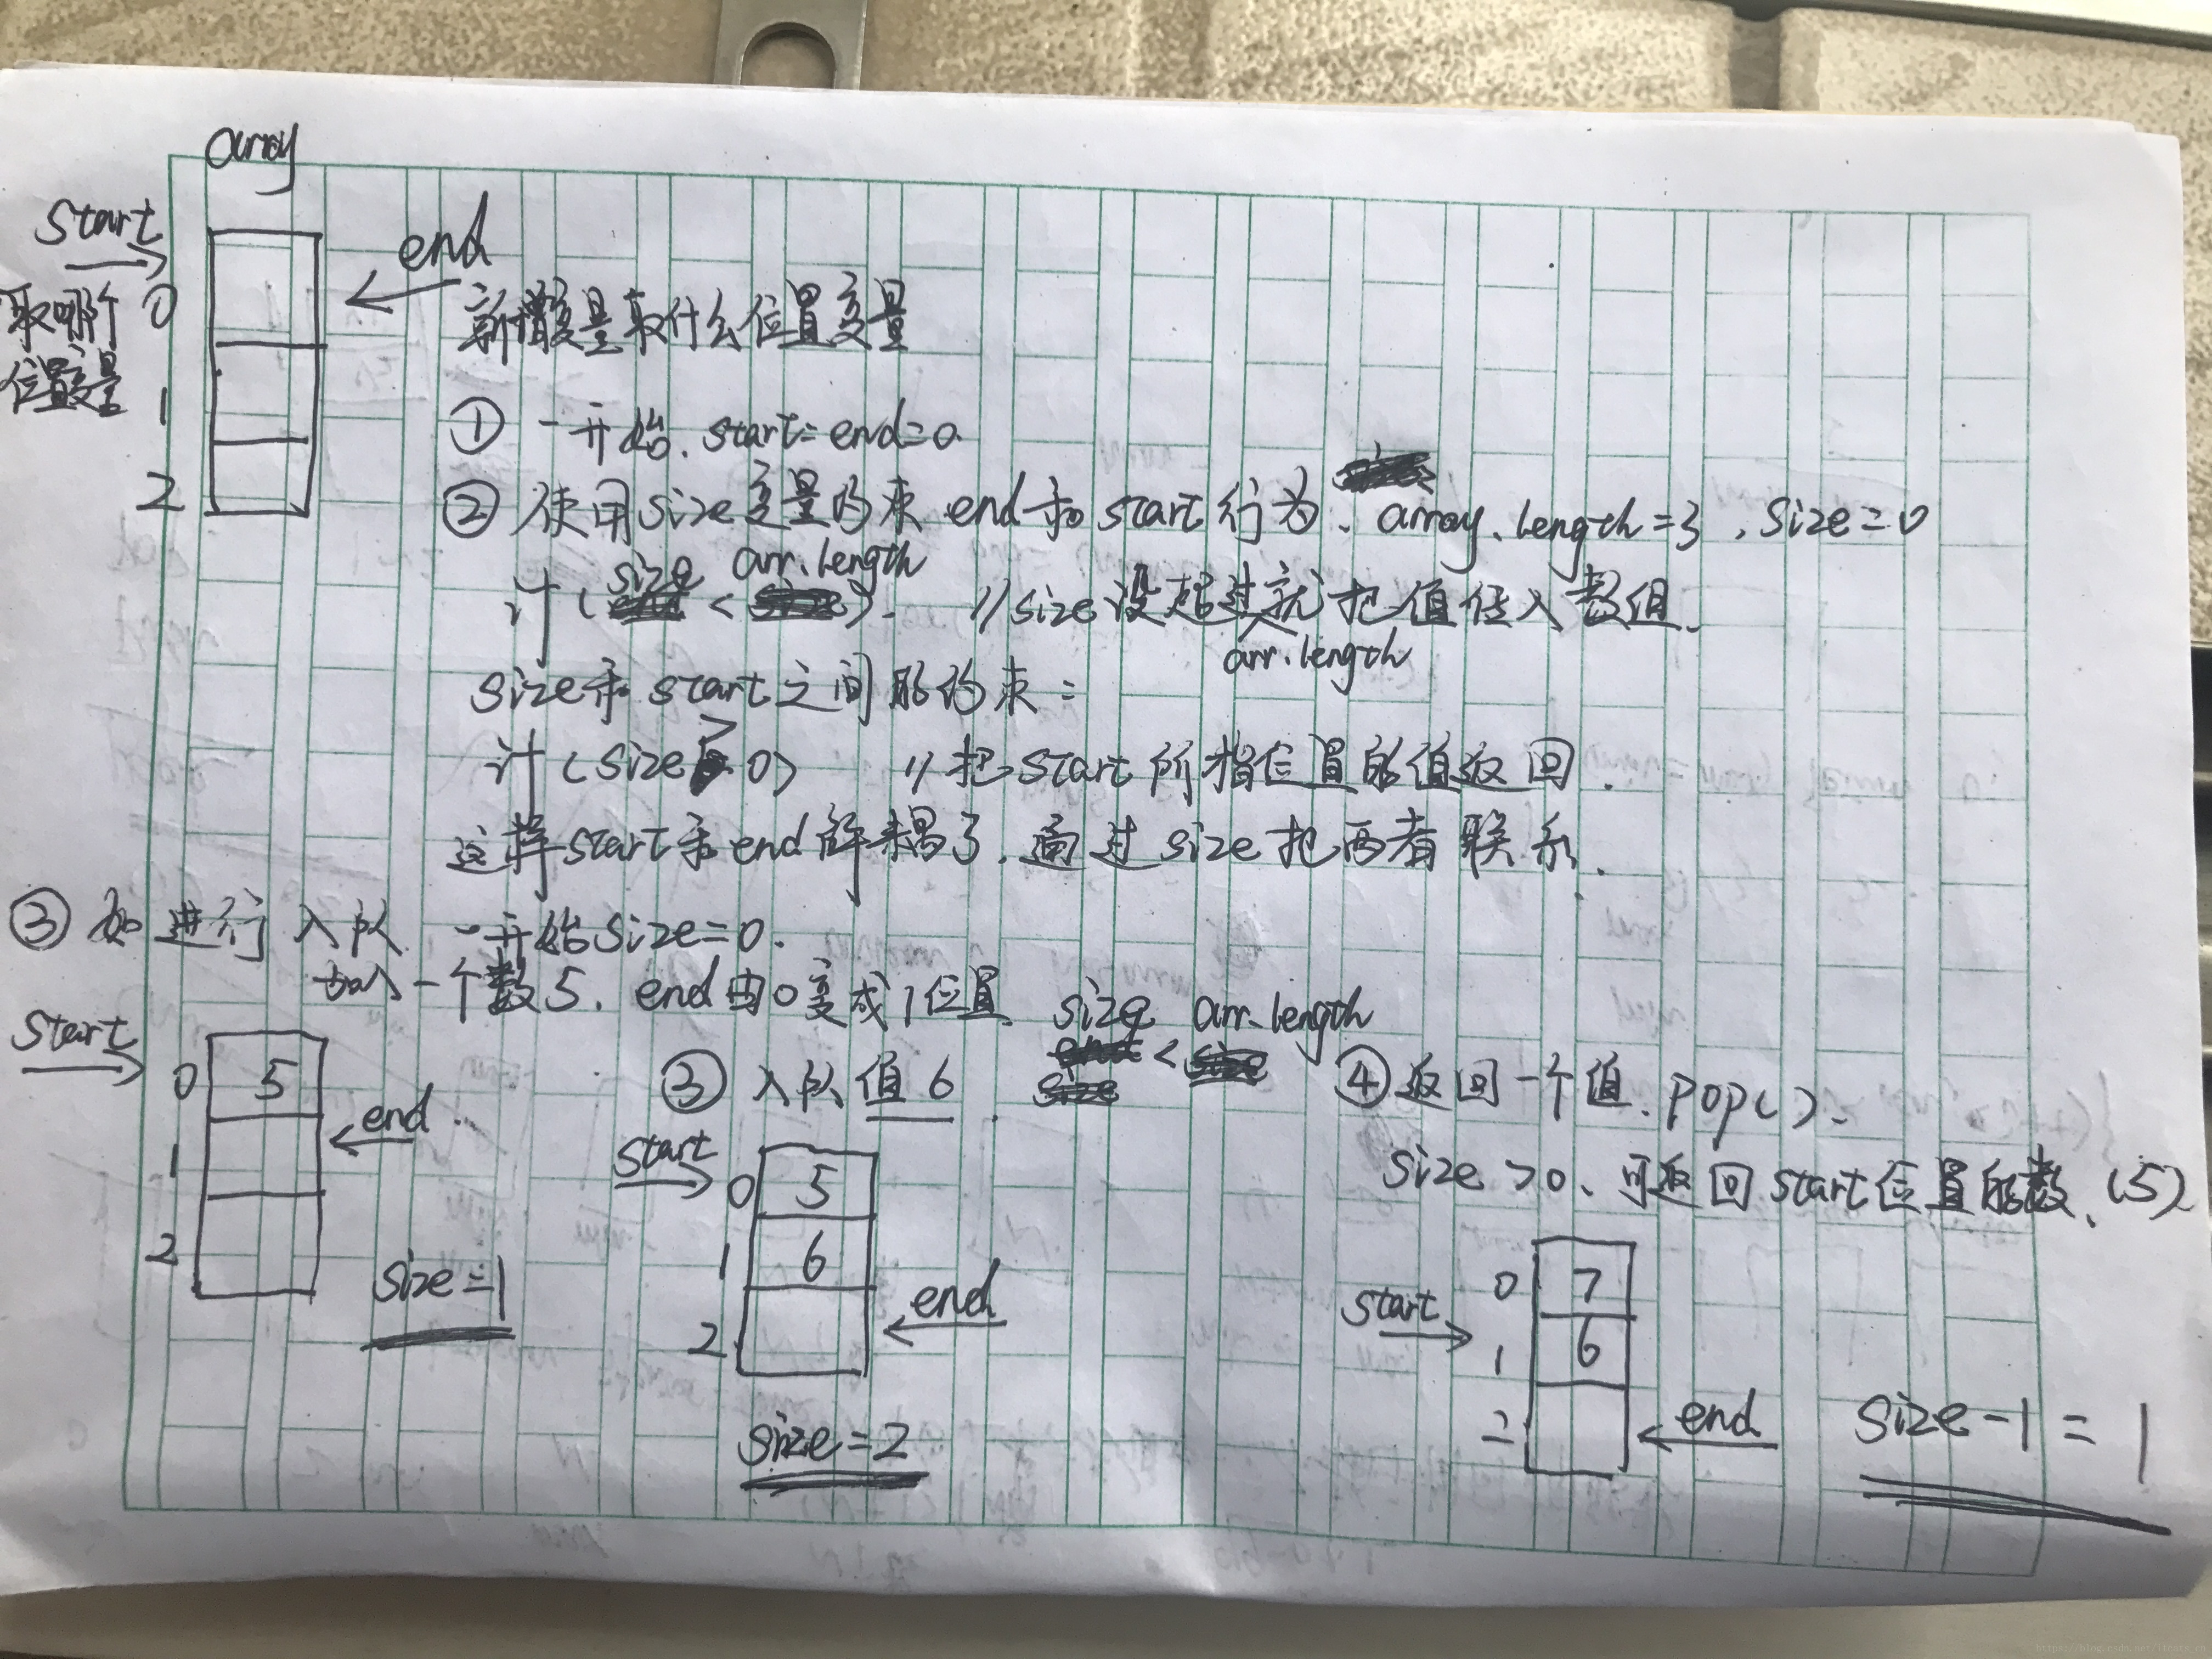 array
start
end
取哪个
位置变量
0
1
2
新增变量取什么位置变量
① 一开始. start=end=0.
② 使用size变量约束 end和start行为、array.length=3,size=0
if (size < arr.length). //size没超过arr.length就把值传入数组.
size和start之间的约束:
if (size>0) //把start所指位置的值返回.
这样start和end解耦了.通过size把两者联系.
③ 如进行入队. 一开始size=0.
加入一个数5. end由0变成1位置.
start
0 5
1
2
end
size=1
③ 入队值6. size < arr.length
start
0 5
1 6
2
end
size=2
④ 返回一个值. pop().
size>0、可返回start位置的数、(5)
start
0 7
1 6
2
end
size-1=1